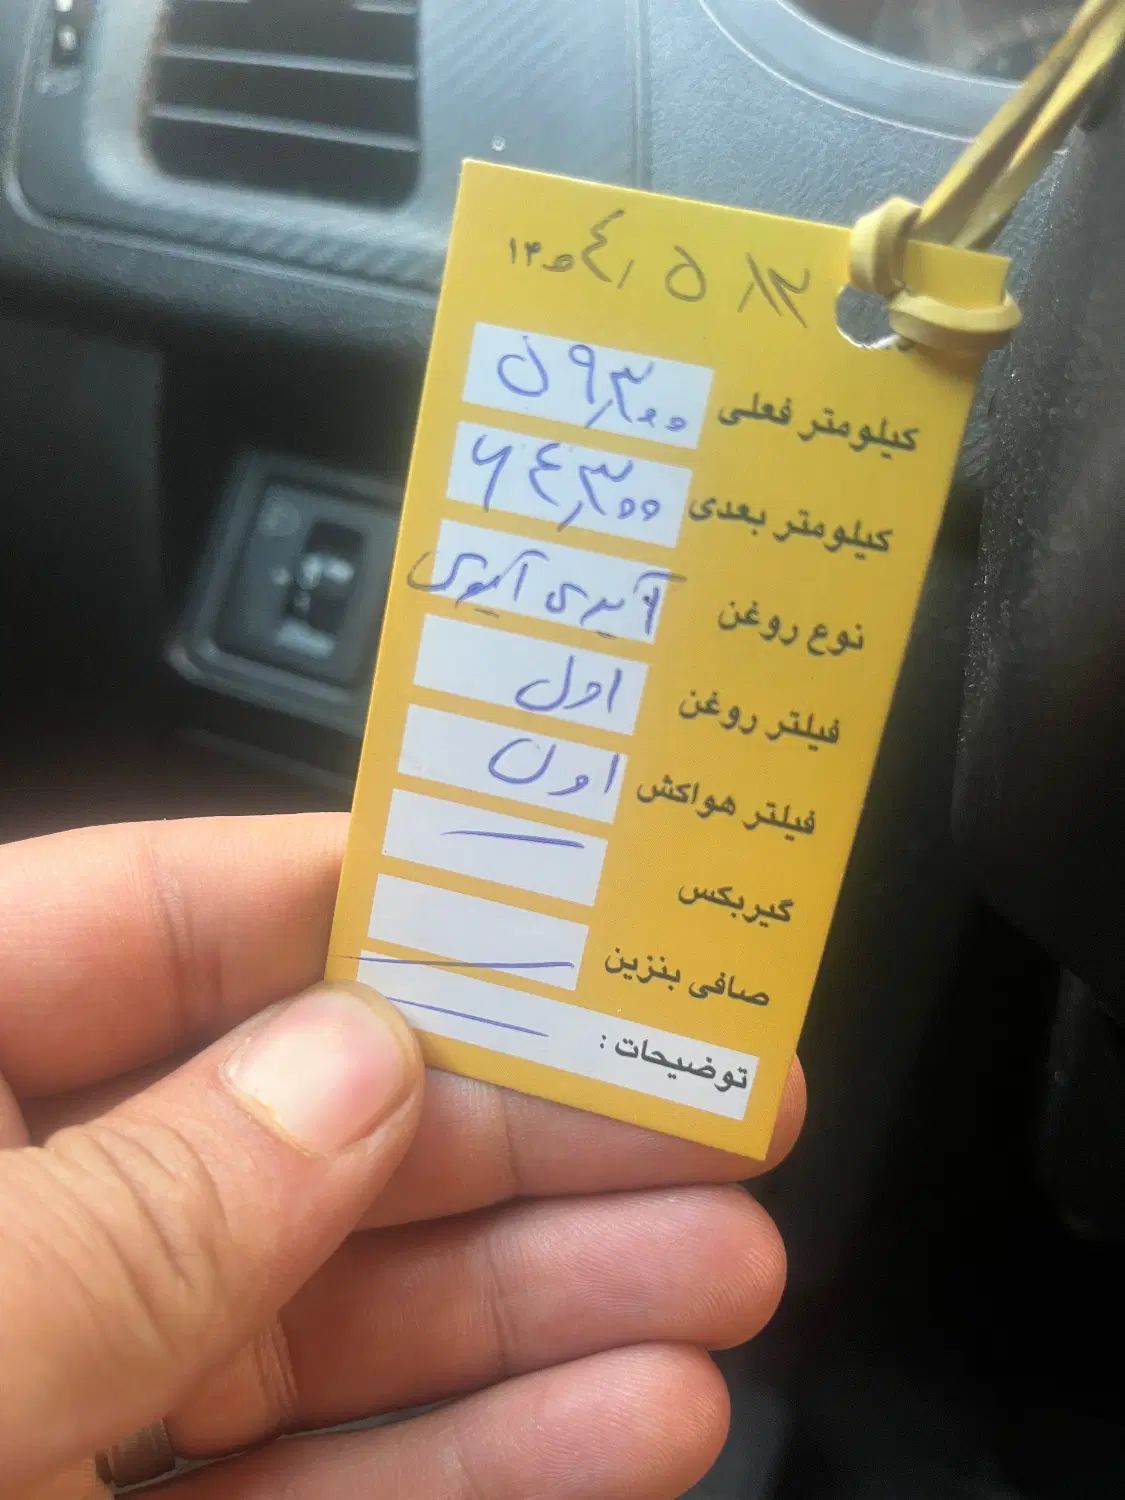 ۱۴۰۴/۵/۱۲
کیلومتر فعلی ۵۹,۳۰۰
کیلومتر بعدی ۶۴,۳۰۰
نوع روغن
فیلتر روغن اول
فیلتر هواکش اول
گیربکس —
صافی بنزین —
توضیحات : —